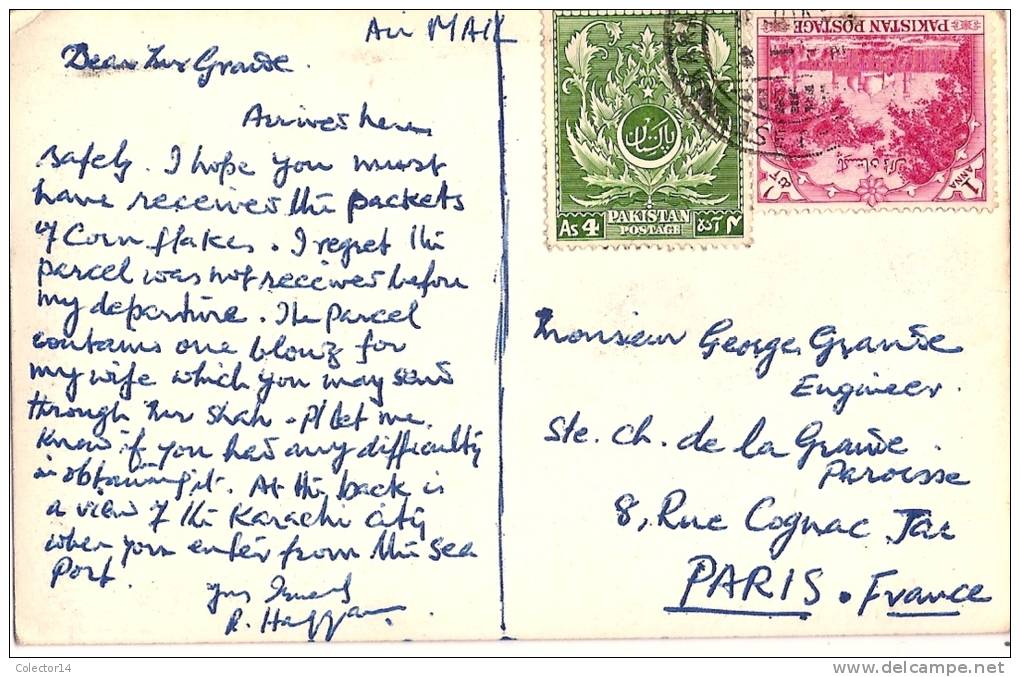 Air MAIL
Dear Mr Grande.
Arrived here
safely. I hope you must
have received the packets
of Corn flakes. I regret the
parcel was not received before
my departure. The parcel
contains one blouz for
my wife which you may send
through Mr Shah. Pl let me
know if you had any difficulty
in obtaining it. At the back is
a view of the Karachi city
when you enter from the sea
port.
R.
پاکستان
PAKISTAN
POSTAGE
As 4
۴ آنہ
PAKISTAN POSTAGE
1
ANNA
Monsieur George Grande
Engineer.
Ste. Ch. de la Grande
Paroisse
8, Rue Cognac Jac
PARIS. France
Colector14
www.delcampe.net